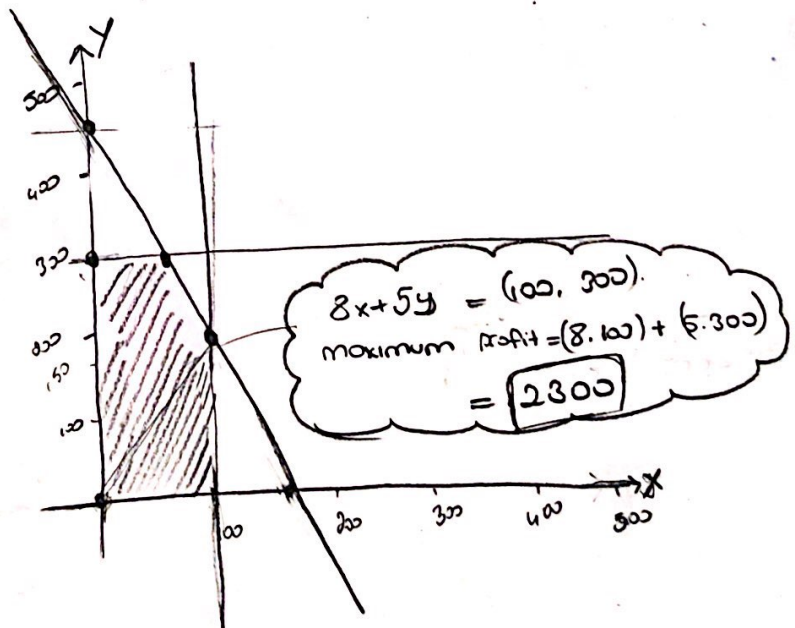 Y
500
400
300
200
150
100
8x+5y = (100, 300).
maximum profit = (8.100) + (5.300)
= 2300
X
00
200
300
400
500